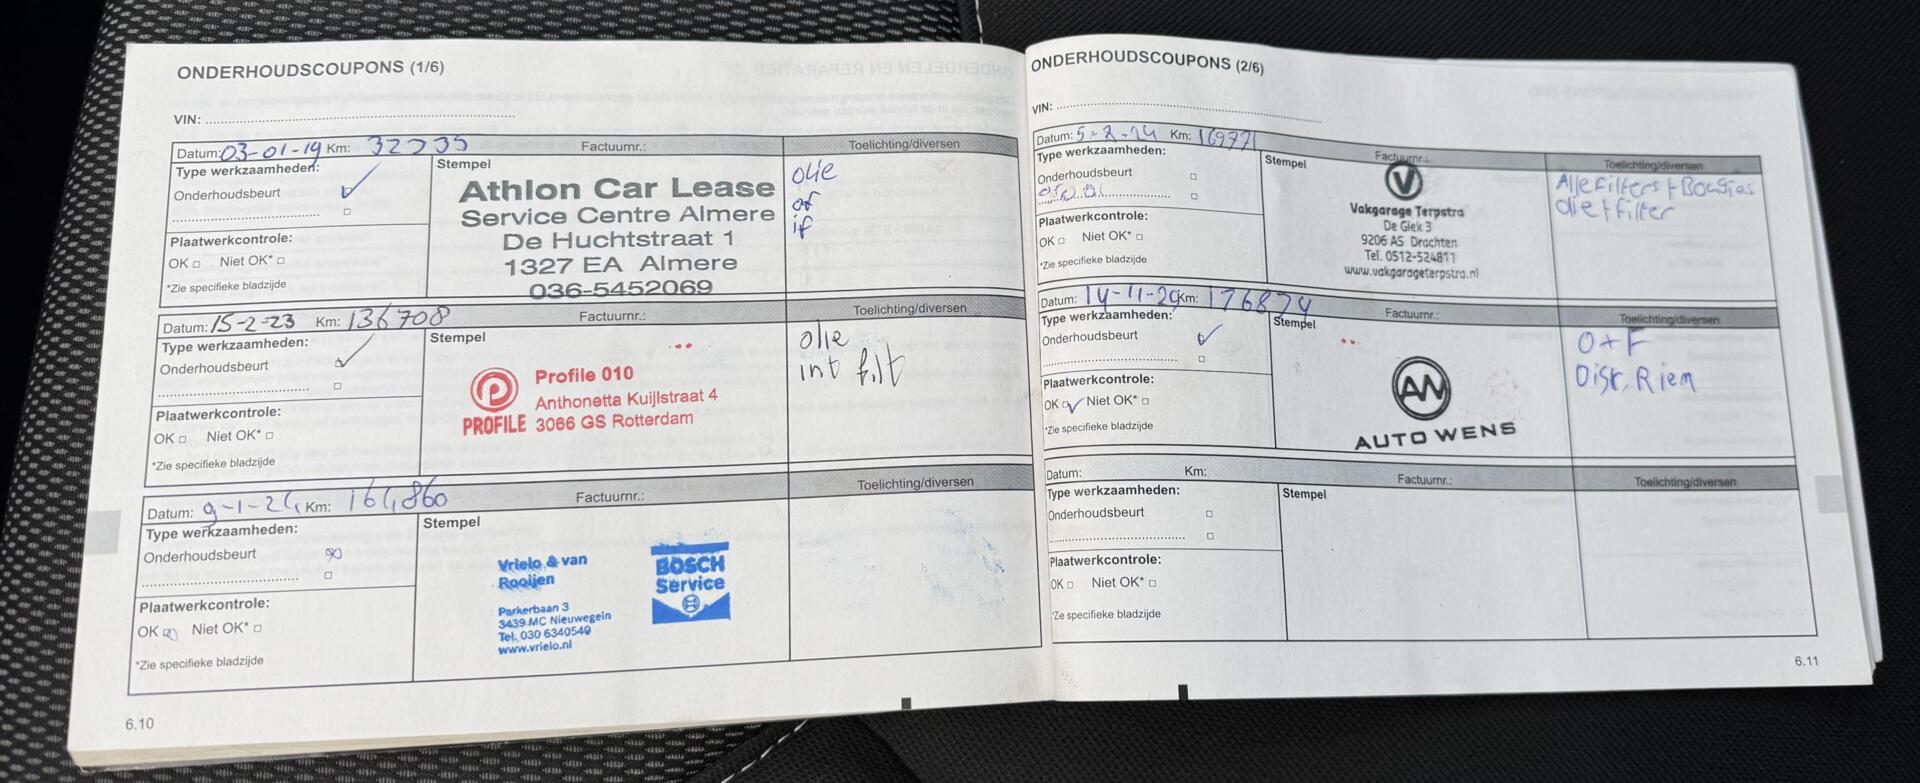 ONDERHOUDSCOUPONS (1/6)
VIN:
Datum: 03-01-19 Km: Factuurnr.: Toelichting/diversen
Type werkzaamheden: Stempel
Onderhoudsbeurt
Athlon Car Lease
Service Centre Almere
De Huchtstraat 1
1327 EA Almere
036-5452069
olie
of
if
Plaatwerkcontrole:
OK Niet OK*
*Zie specifieke bladzijde
Datum: 15-2-23 Km: 136708 Factuurnr.: Toelichting/diversen
Type werkzaamheden: Stempel
Onderhoudsbeurt
Profile 010
Anthonetta Kuijlstraat 4
PROFILE 3066 GS Rotterdam
olie
int filt
Plaatwerkcontrole:
OK Niet OK*
*Zie specifieke bladzijde
Datum: 9-1-24 Km: 164860 Factuurnr.: Toelichting/diversen
Type werkzaamheden: Stempel
Onderhoudsbeurt
Vrielo & van
Rooijen
Parkerbaan 3
3439 MC Nieuwegein
Tel. 030 6340540
www.vrielo.nl
BOSCH
Service
Plaatwerkcontrole:
OK Niet OK*
*Zie specifieke bladzijde
6.10
ONDERHOUDSCOUPONS (2/6)
VIN:
Datum: Km: 169771 Factuurnr.: Toelichting/diversen
Type werkzaamheden: Stempel
Onderhoudsbeurt
Vakgarage Terpstra
De Giek 3
9206 AS Drachten
Tel. 0512-524811
www.vakgarageterpstra.nl
Alle Filters + Bougias
olie + filter
Plaatwerkcontrole:
OK Niet OK*
*Zie specifieke bladzijde
Datum: Km: 176874 Factuurnr.: Toelichting/diversen
Type werkzaamheden: Stempel
Onderhoudsbeurt
AN
AUTO WENS
O+F
Distr. Riem
Plaatwerkcontrole:
OK Niet OK*
*Zie specifieke bladzijde
Datum: Km: Factuurnr.: Toelichting/diversen
Type werkzaamheden: Stempel
Onderhoudsbeurt
Plaatwerkcontrole:
OK Niet OK*
*Zie specifieke bladzijde
6.11